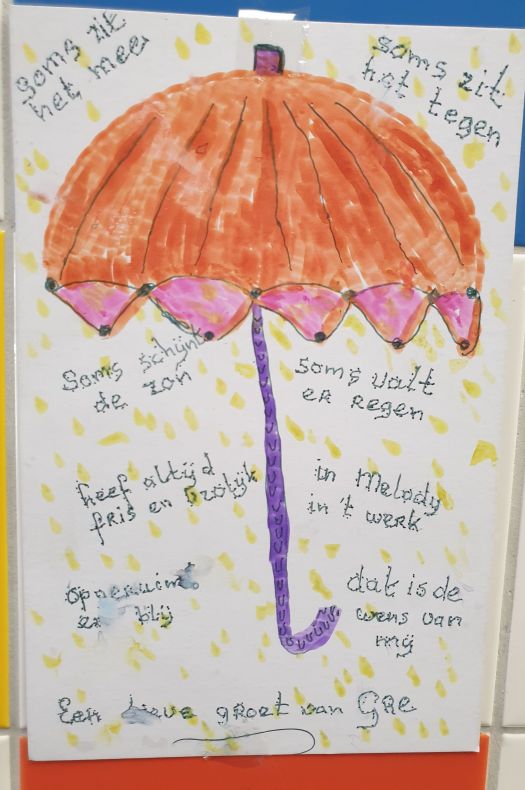 soms zit
het mee
soms zit
het tegen
Soms schijnt
de zon
soms valt
er regen
heef altijd
fris en vrolijk
in Melody
in 't werk
opgeruimt
en blij
dat is de
wens van
mij
Een lieve groet van GRE